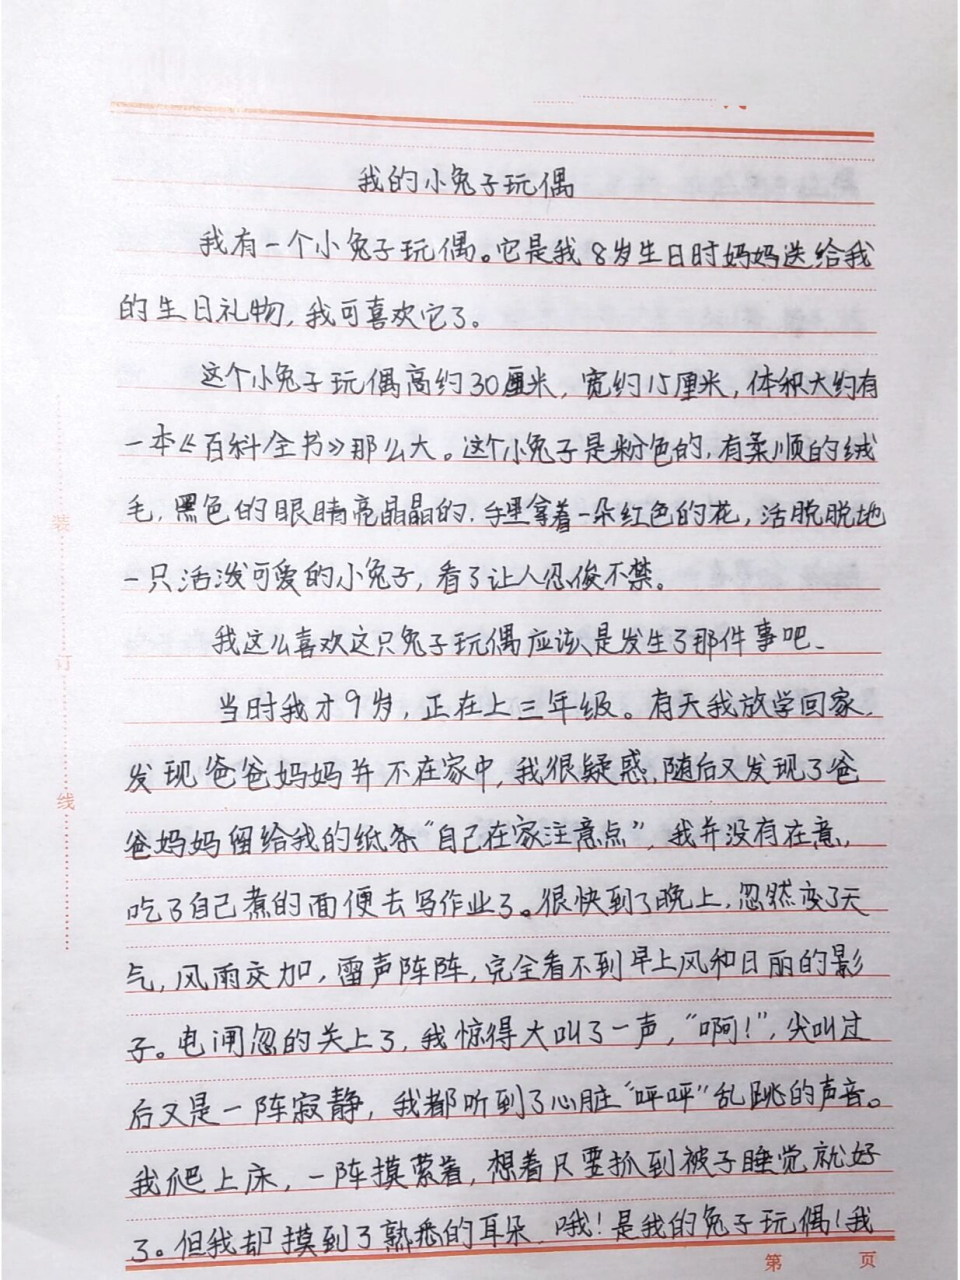 我的小兔子玩偶
我有一个小兔子玩偶。它是我8岁生日时妈妈送给我
的生日礼物,我可喜欢它了。
这个小兔子玩偶高约30厘米,宽约15厘米,体积大约有
一本《百科全书》那么大。这个小兔子是粉色的,有柔顺的绒
毛,黑色的眼睛亮晶晶的,手里拿着一朵红色的花,活脱脱地
一只活泼可爱的小兔子,看了让人忍俊不禁。
我这么喜欢这只兔子玩偶应该是发生了那件事吧.
当时我才9岁,正在上三年级。有天我放学回家,
发现爸爸妈妈并不在家中,我很疑惑,随后又发现了爸
爸妈妈留给我的纸条“自己在家注意点”,我并没有在意,
吃了自己煮的面便去写作业了。很快到了晚上,忽然变了天
气,风雨交加,雷声阵阵,完全看不到早上风和日丽的影
子。电闸忽的关上了,我惊得大叫了一声,“啊!”,尖叫过
后又是一阵寂静,我都听到了心脏“呯呯”乱跳的声音。
我爬上床,一阵摸索着,想着只要抓到被子睡觉就好
了。但我却摸到了熟悉的耳朵,哦!是我的兔子玩偶!我
装
订
线
第 页